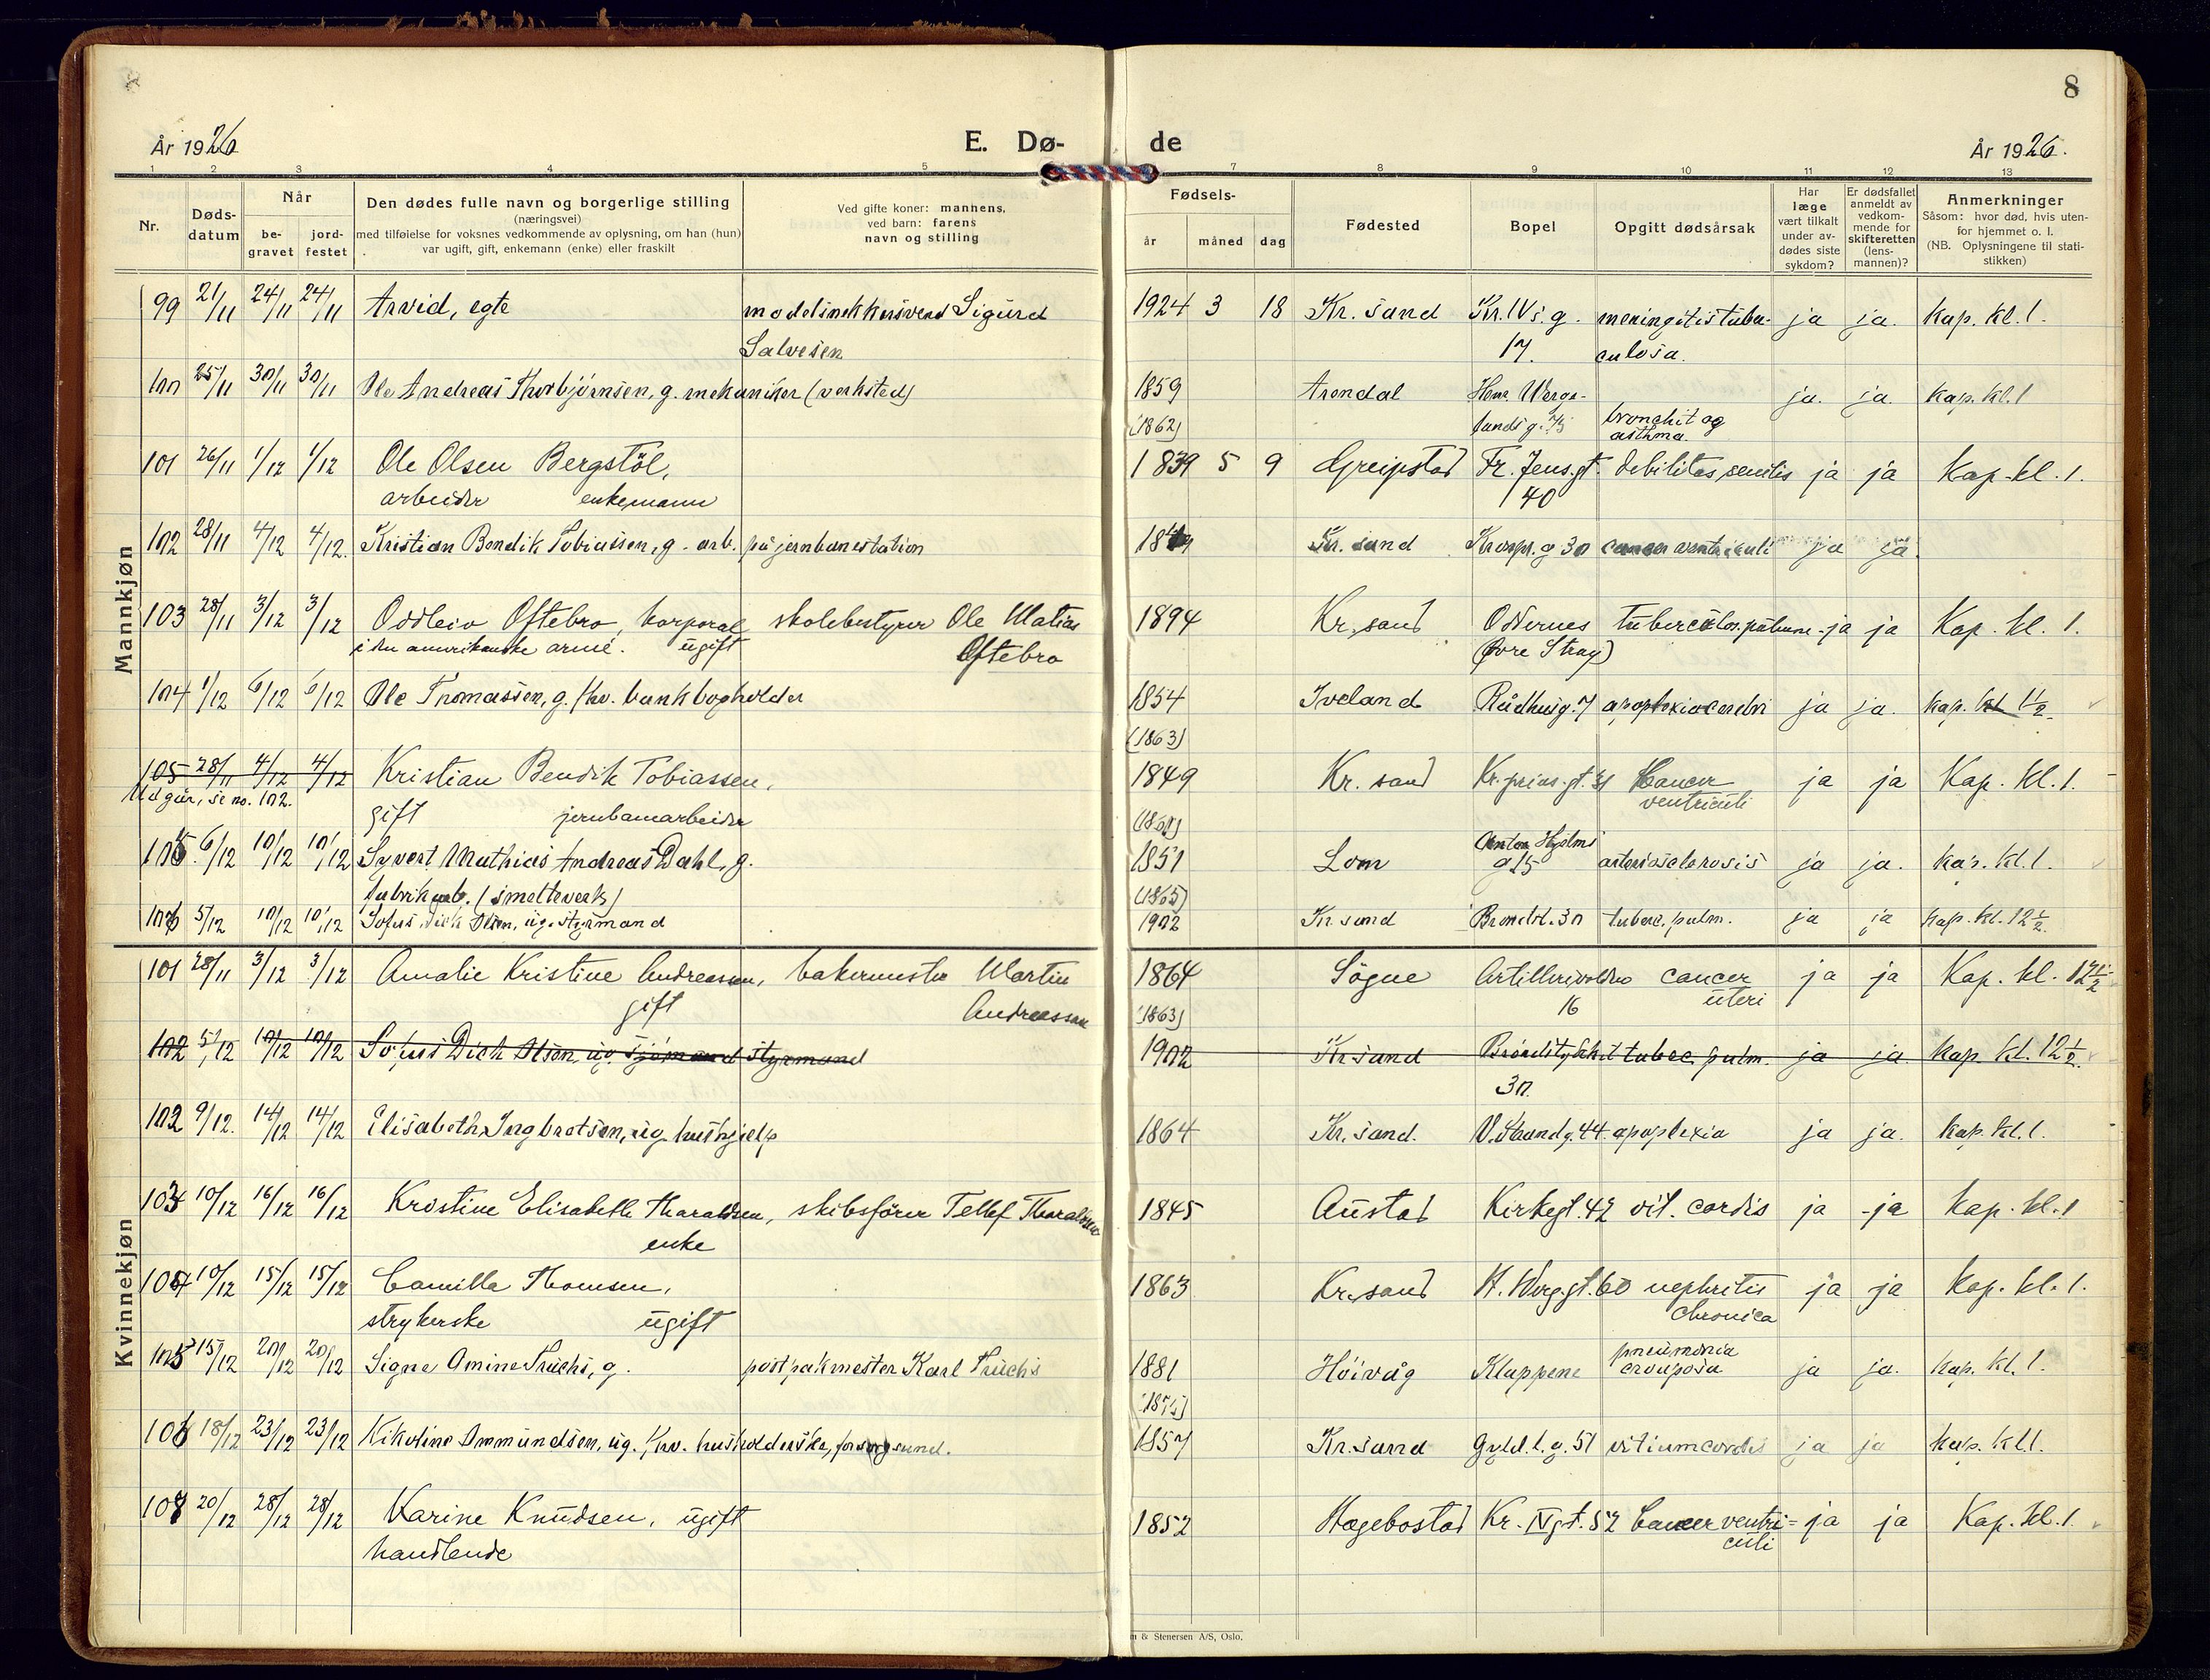 8
År 1926
E. Dø-
de
År 1926.
1 2 3 4 5 7 8 9 10 11 12 13
Nr.
Døds-
datum
Når
be-
gravet
jord-
festet
Den dødes fulle navn og borgerlige stilling
(næringsvei)
med tilføielse for voksnes vedkommende av oplysning, om han (hun)
var ugift, gift, enkemann (enke) eller fraskilt
Ved gifte koner: mannens,
ved barn: farens
navn og stilling
Fødsels-
år måned dag
Fødested
Bopel
Opgitt dødsårsak
Har
læge
vært tilkalt
under av-
dødes siste
sykdom?
Er dødsfallet
anmeldt av
vedkom-
mende for
skifteretten
(lens-
mannen)?
Anmerkninger
Såsom: hvor død, hvis uten-
for hjemmet o. l.
(NB. Oplysningene til stati-
stikken)
Mannkjøn
99 21/11 24/11 24/11 Arvid, egte modelsnekkersvend Sigurd 1924 3 18 Kr.sand Kr. IVs. g. meningitis tuber- ja ja. Kap. kl. 1.
Salvesen 17. culosa.
100 25/11 30/11 30/11 Ole Andreas Thorbjørnsen, g. mekaniker (verksted) 1859 Arendal Henr. Werge- ja. ja. Kap. kl. 1
(1862) lands g. bronchit og
asthma.
101 26/11 1/12 1/12 Ole Olsen Bergstöl, 1839 5 9 Greipstad Fr. Jens. gt. debilitas senilis ja ja Kap. kl. 1.
arbeider enkemann 40
102 28/11 4/12 4/12. Kristian Bendik Tobiassen, g. arb. på jernbanestation Kr.sand Kronpr. g 30 cancer ventriculi ja ja
103 28/11 3/12 3/12 Oddleiv Oftebro, korporal skolebestyrer Ole Matias 1894 Kr.sand Oddernes tuberculos. pulmon. ja ja Kap. kl. 1.
i den amerikanske armé. ugift Oftebro (Øvre Stray)
104 1/12 6/12 6/12 Ole Thomassen, g. fhv. bankbogholder 1854 Iveland Rådhusg. 7 apoplexia cerebri ja ja. Kap. kl 1½.
(1863)
105 28/11 4/12 4/12 Kristian Bendik Tobiassen, 1849 Kr. sand Kr. prins. gt. 31 Cancer ja ja Kap. kl. 1.
Udgår, se no. 102. gift jernbanearbeider ventriculi
105. 6/12 10/12 10/12 Syvert Mathias Andreas Dahl, g. 1851 Lom Anton Hjelms g 15 arteriosclerosis ja ja. Kap. kl. 1.
fabrikarb. (smelteverk) (1865)
106 5/12 10/12 10/12 Sofus Dick Olsen, ug. styrmand 1902 Kr.sand Brondst. 30 tuberc. pulm. ja ja Kap. kl. 12½.
Kvinnekjøn
101 28/11 3/12 3/12 Amalie Kristine Andreassen, bakermester Martin 1864 Sögne Artillerivolden cancer ja ja Kap. kl. 12½
gift Andreassen (1863) 16 uteri
102 5/12 10/12 10/12 Sofus Dick Olsen, ug. sjømand styrmand 1902 Kr.sand tuberc. pulm. ja ja Kap. kl. 12½.
30.
102 9/12. 14/12 14/12 Elisabeth Ingbretsen, ug. hushjelp 1864 Kr.sand. V. Strandg. 44. apoplexia ja ja. Kap. kl. 1.
103 10/12 16/12 16/12 Kristine Elisabeth Tharaldsen, skibsfører Tellef Tharaldsen 1845 Austad Kirkegt. 42 vit. cordis ja ja Kap. kl. 1
enke
104 10/12 15/12 15/12 Camilla Thomsen, 1863 Kr.sand H. Werg. gt. 60 nephritis ja ja Kap. kl. 1.
strykerske ugift chronica
105 15/12 20/12 20/12 Signe Omine Fuchs, g. postpakmester Karl Fuchs 1881 Höivåg Kluppene pneumonia crouposa ja ja. Kap. kl. 1.
106 18/12 23/12 23/12 Nikoline Ommundsen, ug. fhv. husholderske, forsorgsund. 1857 Kr.sand Gyld. l. g. 51 vitium cordis ja ja Kap. kl. 1.
107 20/12 28/12 28/12 Karine Knudsen, ugift 1852 Hægebostad Kr. IV gt. 52 Cancer ventri- ja ja Kap. kl. 1.
handlende culi
& Stenersen A/S, Oslo.